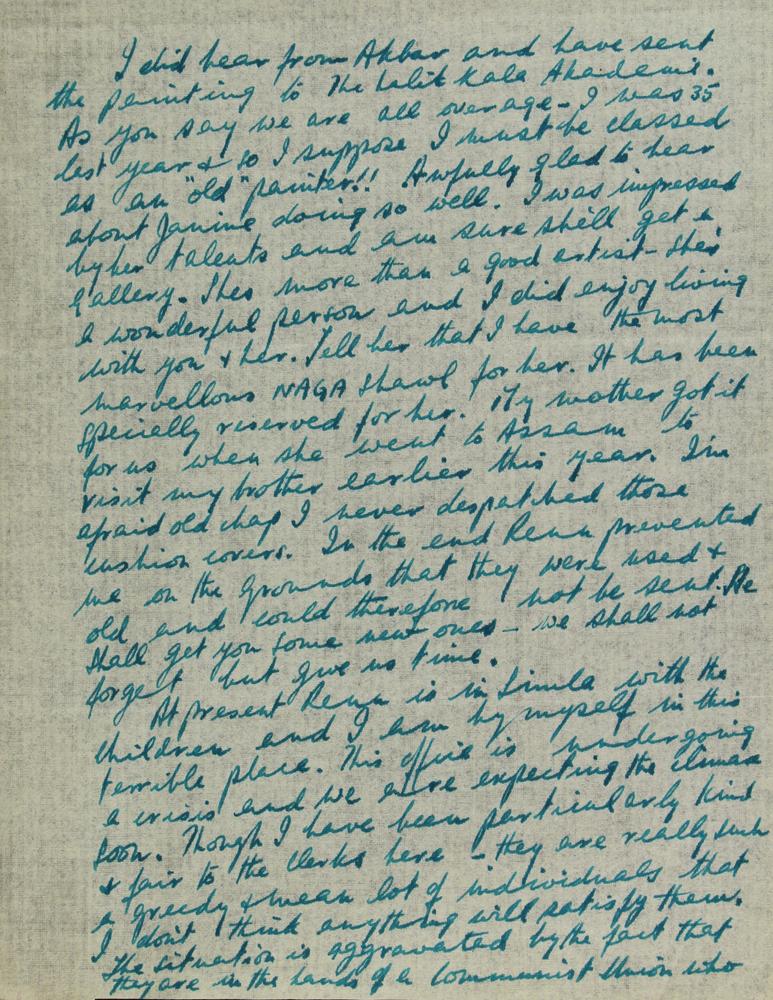 I did hear from Akbar and have sent
the painting to The Lalit Kala Akademi.
As you say we are all overage - I was 35
last year & so I suppose I must be classed
as an "old" painter!! Awfully glad to hear
about Janine doing so well. I was impressed
by her talents and am sure she'll get a
gallery. Shes more than a good artist - Shes
a wonderful person and I did enjoy living
with you & her. Tell her that I have the most
marvellous NAGA Shawl for her. It has been
specially reserved for her. My mother got it
for us when she went to Assam to
visit my brother earlier this year. I'm
afraid old chap I never despatched those
cushion covers. In the end Renu prevented
me on the grounds that they were used &
old and could therefore not be sent. We
shall get you some new ones - we shall not
forget but give us time.
At present Renu is in Simla with the
children and I am by myself in this
terrible place. This office is undergoing
a crisis and we are expecting the climax
soon. Though I have been particularly kind
& fair to the clerks here - they are really such
a greedy & mean lot of individuals that
I don't think anything will satisfy them.
The situation is aggravated by the fact that
they are in the hands of a Communist Union who